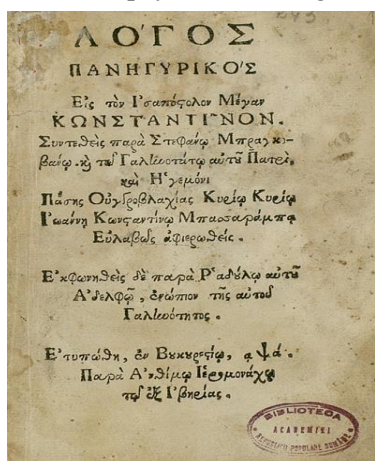 243
ΛΟ'ΓΟΣ
ΠΑΝΗΓΥΡΙΚΟ'Σ
Εἰς τὸν Ἰσαπόςολον Μέγαν
ΚΩΝΣΤΑΝΤΙ͂ΝΟΝ.
Συντεθεὶς παρὰ Στεφάνῳ Μπραγκο-
βαίνῳ. κὴ τῷ Γαλίωοτάτῳ αὐτοῦ Πατρὶ,
καὶ Ἡγεμόνι
Πάσης Οὐγβροβλαχίας Κυρίῳ Κυρίῳ
Ἰωάννῃ Κωνςαντίνῳ Μπασαράμπᾳ
Εὐλαβῶς ἀφιερωθείς.
Ἐκφωνηθεὶς δὲ παρὰ Ῥαδύλῳ αὐτοῦ
Ἀδελφῷ, ἐνώπιον τῆς αὐτοῦ
Γαλίωότητος.
Ἐτυπώθη, ἐν Βυκυρεςίῳ, ͵αψά.
Παρὰ Ἀνθίμῳ Ἱερομονάχῳ
τῷ ἐξ Ἰβηρίας.
BIBLIOTECA
ACADEMIEI
REPUBLICII POPULARE ROMÎNE